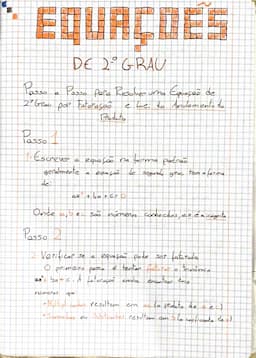 EQUAÇÕES
DE 2º GRAU
Passo a Passo Para Resolver uma Equação de
2º Grau por Fatoração e Lei do Anulamento do
Produto
Passo 1
1. Escrever a equação na forma padrão
geralmente a equação de segundo grau tem a forma
de:
ax² + bx + c = 0
Onde a, b e c são números conhecidos, e x é a incógnita
Passo 2
2. Verificar se a equação pode ser fatorada
O primeiro passo é tentar fatorar o trinômio
ax² + bx + c. A fatoração envolve encontrar dois
números que
• Multiplicados resultam em ac (o produto de a e c)
• Somados ou Subtraídos resultam em b (o coeficiente de x)